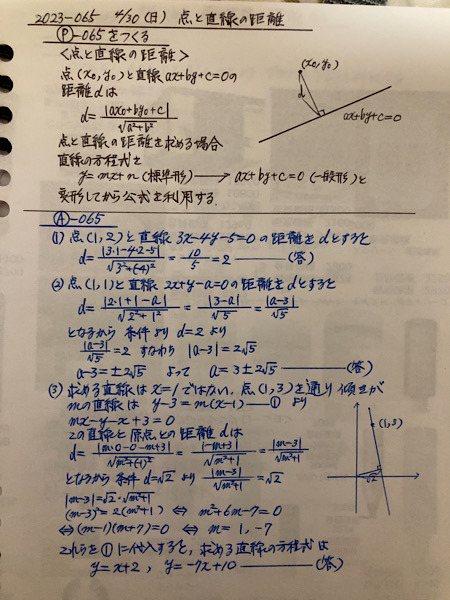 2023-065 4/30(日) 点と直線の距離
Ⓟ-065をつくる
<点と直線の距離>
点(x₀,y₀)と直線 ax+by+c=0の
距離dは
d=|ax₀+by₀+c|/√(a²+b²)
(x₀,y₀)
d
ax+by+c=0
点と直線の距離を求める場合
直線の方程式を
y=mx+n(標準形)→ax+by+c=0(一般形)と
変形してから公式を利用する.
Ⓐ-065
(1) 点(1,2)と直線 3x-4y-5=0の距離をdとすると
d=|3・1-4・2-5|/√(3²+(-4)²)=10/5=2―(答)
(2) 点(1,1)と直線 2x+y-a=0の距離をdとすると
d=|2・1+1-a|/√(2²+1²)=|3-a|/√5=|a-3|/√5
となるから 条件より d=2より
|a-3|/√5=2 すなわち |a-3|=2√5
a-3=±2√5 よって a=3±2√5―(答)
(3) 求める直線はx=1ではない.点(1,3)を通り傾きが
mの直線は y-3=m(x-1)―① より
mx-y-m+3=0
この直線と原点との距離dは
d=|m・0-0-m+3|/√(m²+(-1)²)=|-m+3|/√(m²+1)=|m-3|/√(m²+1)
となるから 条件d=√2より |m-3|/√(m²+1)=√2
|m-3|=√2・√(m²+1)
(m-3)²=2(m²+1) ⇔ m²+6m-7=0
⇔(m-1)(m+7)=0 ⇔ m=1,-7
これらを①に代入すると,求める直線の方程式は
y=x+2, y=-7x+10―(答)
(1,3)
√2